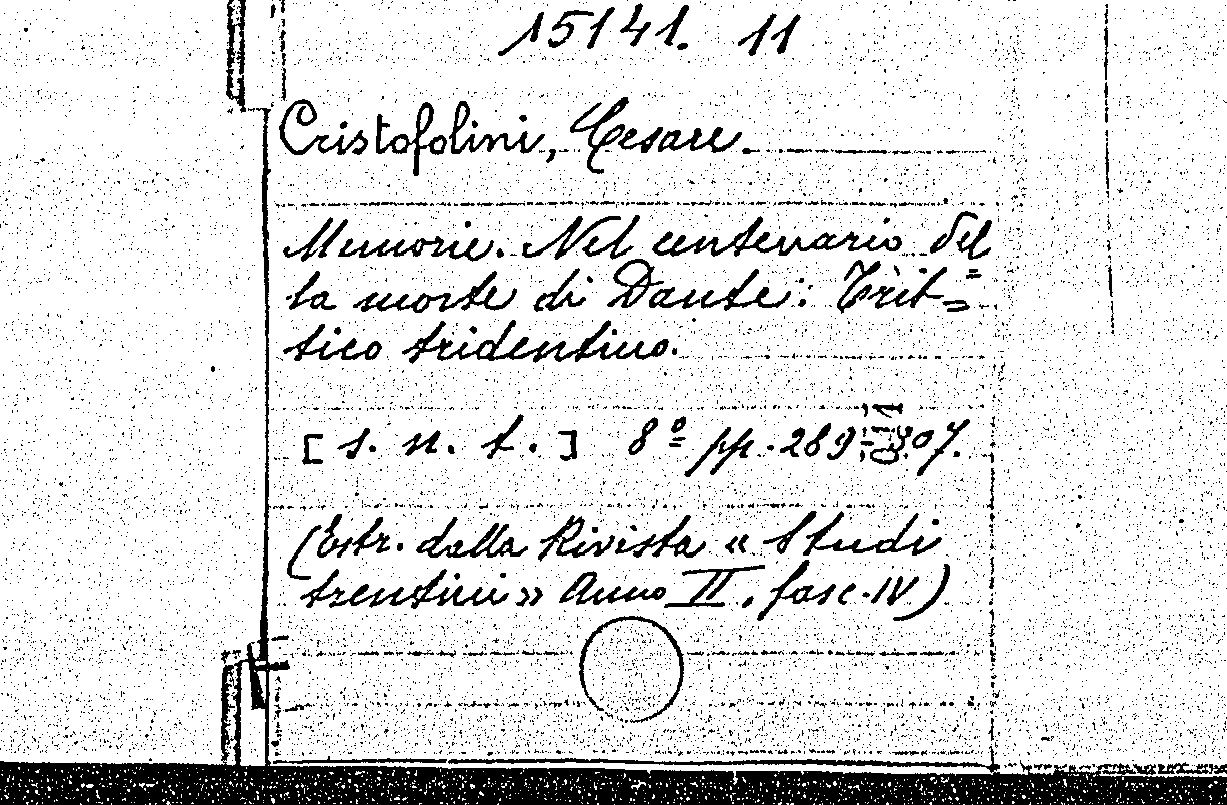 15141. 11
Cristofolini, Cesare.
Memorie. Nel centenario del=
la morte di Dante: Trit=
tico tridentino.
[s. n. t.] 8º pp. 289-307.
(Estr. dalla Rivista « Studi
trentini » Anno II, fasc. IV)